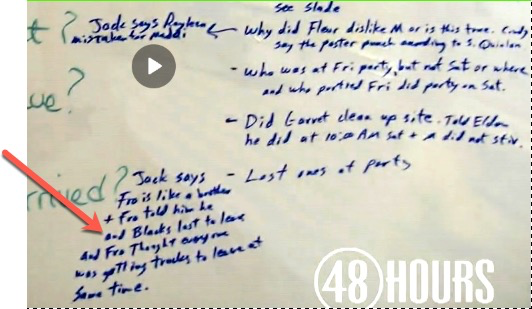 see Slade
t? Jack says
mistake for
← Why did Fleur dislike M or is this true. Cindy
say the poster punch according to S. Quinlan
ve?
- Who was at Fri party, but not Sat or where
and who partied Fri did party on Sat.
- Did Garret clean up site. Told Eldon
he did at 10:00 AM Sat + M did not stir.
rrived? Jack says
- Last ones at party
Fro is like a brother
+ Fro told him he
and Blacks last to leave
and Fro Thought everyone
was getting trucks to leave at
Same time.
48 HOURS